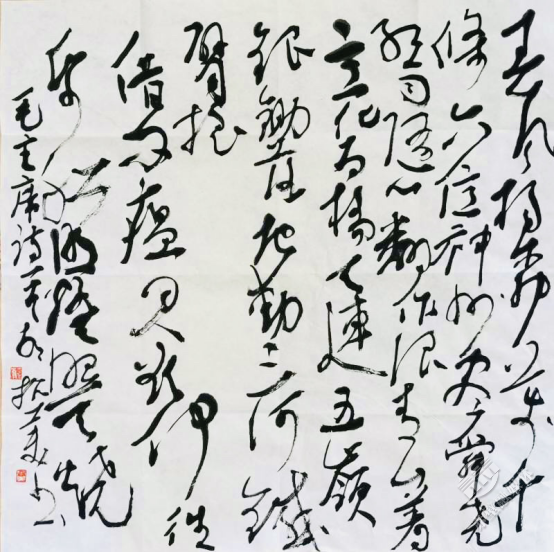 春风杨柳万千
條六億神州尽舜尧
红雨随心翻作浪青山着
意化为橋天連五嶺
銀鋤落地動三河鐵
臂摇
借问瘟君欲何往
纸船明烛照天烧
毛主席诗一首 书